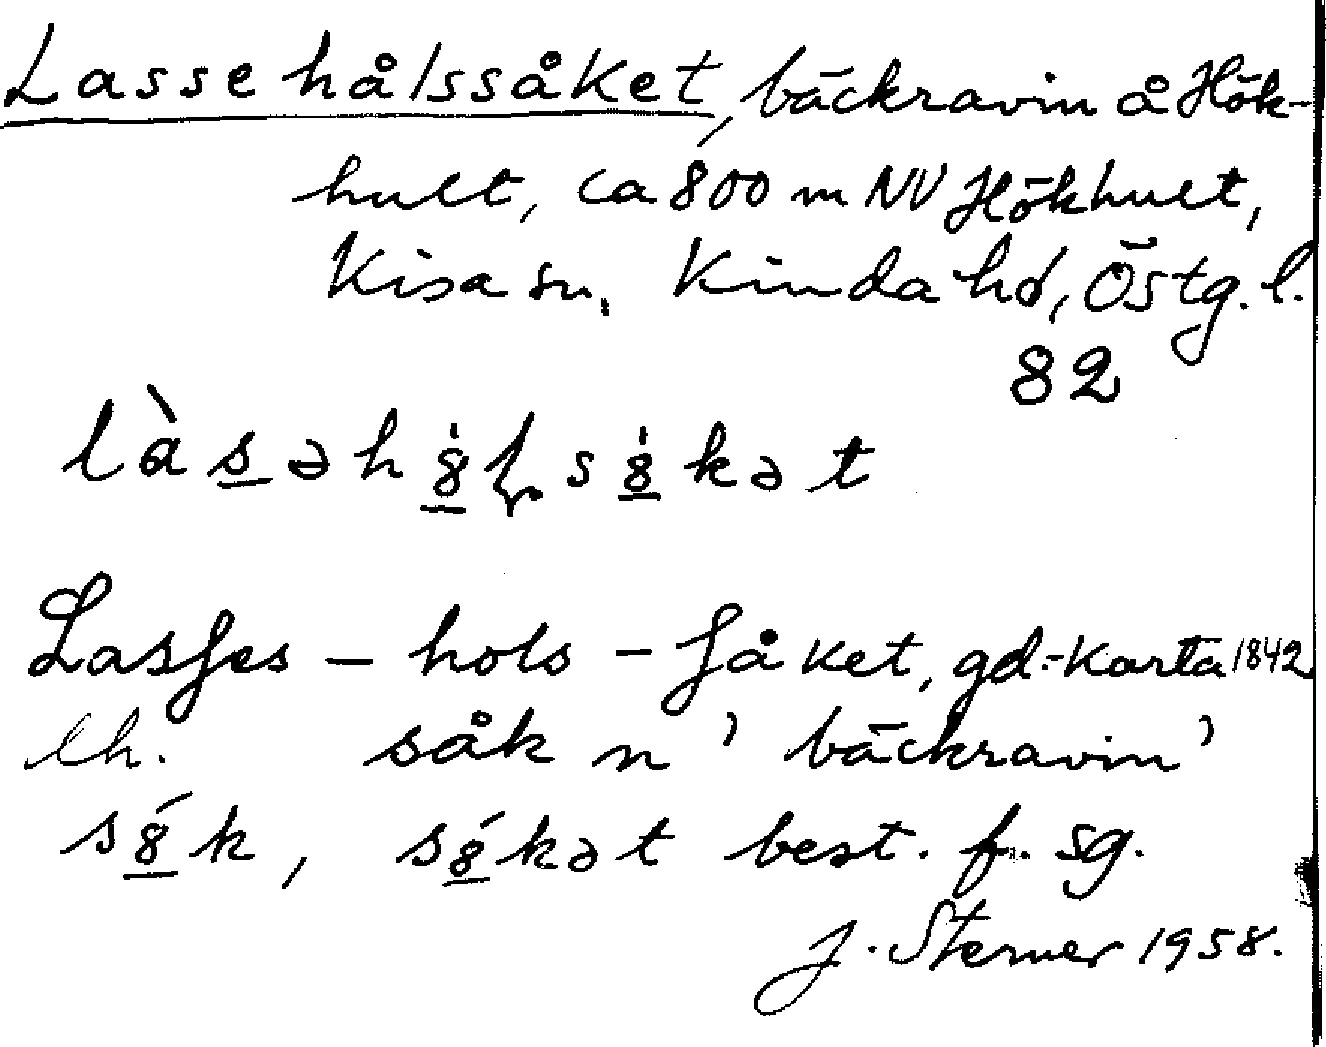 Lassehålssåket, bäckravin å Hök-
hult, ca 800 m NV Hökhult,
Kisa sn, Kinda hd, Östg. l.
82
làsəh8ls8kət
Lasses - hols - såket, gd.-karta 1842
lh. såk n 'bäckravin'
s8́k, s8́kət best. f. sg.
J. Sterner 1958.